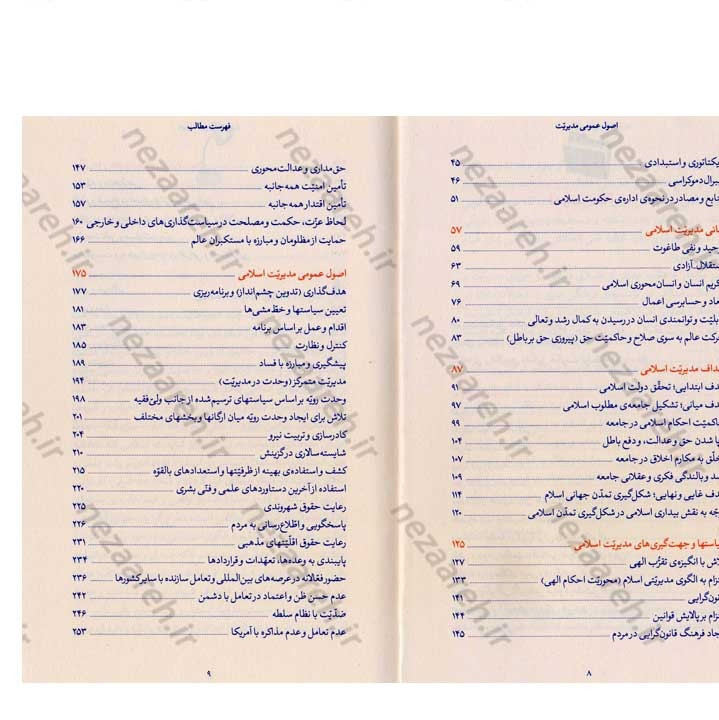 اصول عمومی مدیریّت
یکتاتوری و استبدادی ۴۵
یبرال‌دموکراسی ۴۶
نابع و مصادر در نحوه‌ی اداره‌ی حکومت اسلامی ۵۱
بانی مدیریّت اسلامی ۵۷
وحید و نفی طاغوت ۵۹
ستقلال، آزادی ۶۳
کریم انسان و انسان‌محوری اسلامی ۶۹
عاد و حسابرسی اعمال ۷۶
ابلیّت و توانمندی انسان در رسیدن به کمال رشد و تعالی ۸۰
رکت عالم به سوی صلاح و حاکمیّت حق (پیروزی حق بر باطل) ۸۳
هداف مدیریّت اسلامی ۸۷
دف ابتدایی؛ تحقّق دولت اسلامی ۹۱
دف میانی؛ تشکیل جامعه‌ی مطلوب اسلامی ۹۷
ماکمیّت احکام اسلامی در جامعه ۹۹
پا شدن حق و عدالت، و دفع باطل ۱۰۴
خلّق به مکارم اخلاق در جامعه ۱۰۷
شد و بالندگی فکری و عقلانی جامعه ۱۰۹
دف غایی و نهایی؛ شکل‌گیری تمدّن جهانی اسلام ۱۱۴
وجّه به نقش بیداری اسلامی در شکل‌گیری تمدّن اسلامی ۱۲۰
یاستها و جهت‌گیری‌های مدیریّت اسلامی ۱۲۵
لاش با انگیزه‌ی تقرّب الهی ۱۲۷
تزام به الگوی مدیریّتی اسلام (محوریّت احکام الهی) ۱۳۳
نون‌گرایی ۱۴۱
تزام بر پالایش قوانین ۱۴۴
جاد فرهنگ قانون‌گرایی در مردم ۱۴۵
۸
فهرست مطالب
حق‌مداری و عدالت‌محوری ۱۴۷
تأمین امنیّت همه‌جانبه ۱۵۳
تأمین اقتدار همه‌جانبه ۱۵۷
لحاظ عزّت، حکمت و مصلحت در سیاست‌گذاری‌های داخلی و خارجی ۱۶۰
حمایت از مظلومان و مبارزه با مستکبران عالم ۱۶۶
اصول عمومی مدیریّت اسلامی ۱۷۵
هدف‌گذاری (تدوین چشم‌انداز) و برنامه‌ریزی ۱۷۷
تعیین سیاستها و خطّ‌مشی‌ها ۱۸۱
اقدام و عمل بر اساس برنامه ۱۸۳
کنترل و نظارت ۱۸۵
پیشگیری و مبارزه با فساد ۱۸۹
مدیریّت متمرکز (وحدت در مدیریّت) ۱۹۴
وحدت رویّه بر اساس سیاستهای ترسیم‌شده از جانب ولیّ‌فقیه ۱۹۸
تلاش برای ایجاد وحدت رویّه میان ارگانها و بخشهای مختلف ۲۰۱
کادرسازی و تربیت نیرو ۲۰۴
شایسته‌سالاری در گزینش ۲۱۰
کشف و استفاده‌ی بهینه از ظرفیّتها و استعدادهای بالقوّه ۲۱۵
استفاده از آخرین دستاوردهای علمی و فنّی بشری ۲۲۰
رعایت حقوق شهروندی ۲۲۵
پاسخگویی و اطّلاع‌رسانی به مردم ۲۲۶
رعایت حقوق اقلّیّتهای مذهبی ۲۳۱
پایبندی به وعده‌ها، تعهّدات و قراردادها ۲۳۴
حضور فعّالانه در عرصه‌های بین‌المللی و تعامل سازنده با سایر کشورها ۲۳۶
عدم حسن ظن و اعتماد در تعامل با دشمن ۲۴۲
ضدّیّت با نظام سلطه ۲۴۶
عدم تعامل و عدم مذاکره با آمریکا ۲۵۳
۹
nezaareh.ir